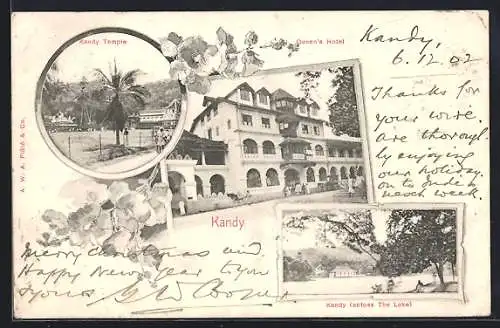 Kandy Temple
Queen's Hotel
Kandy,
6.12.02
Thanks for
your wire.
Are thorough-
ly enjoying
our holiday.
on to India
next week.
A. W. A. Plâté & Co.
Kandy
Kandy (across The Lake)
Merry Christmas and
Happy New Year to you
& yours